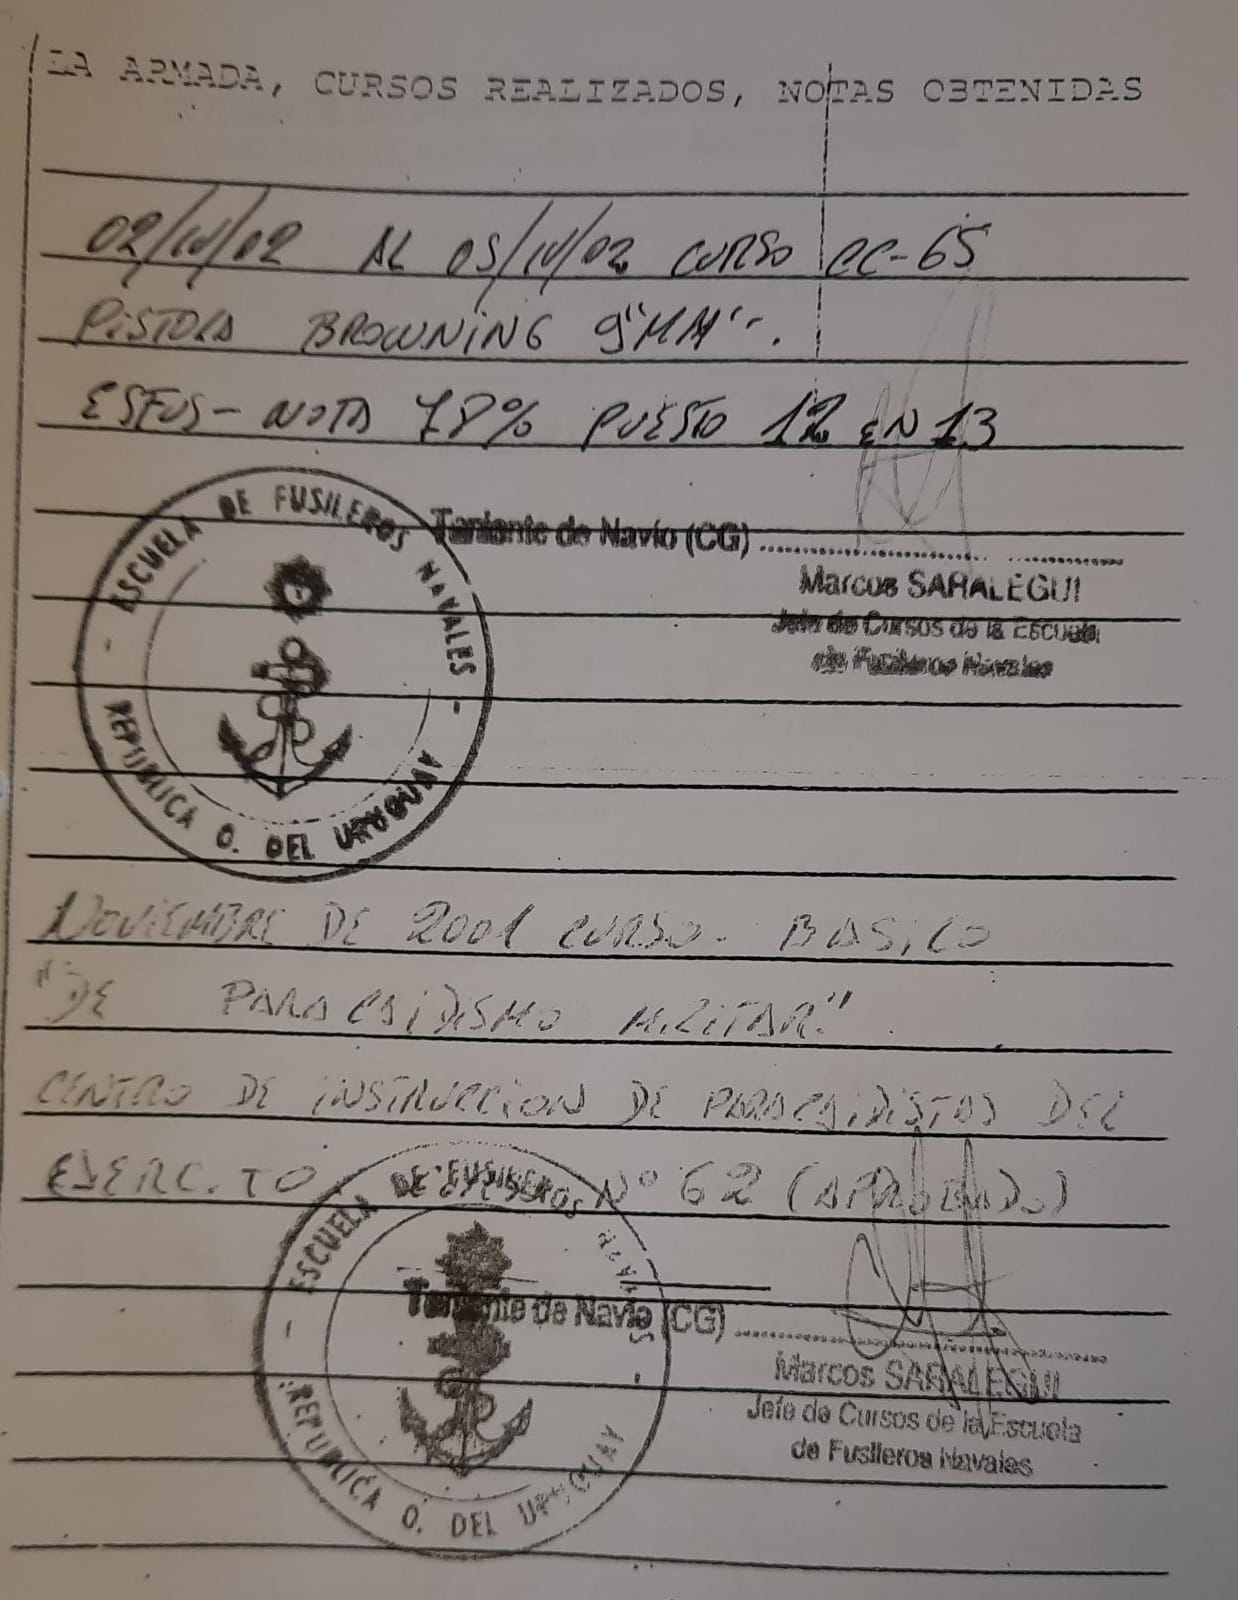 LA ARMADA, CURSOS REALIZADOS, NOTAS OBTENIDAS
02/IV/02 AL 05/IV/02 CURSO CC-65
PISTOLA BROWNING 9"MM".
ESFUS- NOTA 78% PUESTO 12 EN 13
- ESCUELA DE FUSILEROS NAVALES -
REPUBLICA O. DEL URUGUAY
Teniente de Navío (CG)
Marcos SARALEGUI
Jefe de Cursos de la Escuela
de Fusileros Navales
NOVIEMBRE DE 2001 CURSO. BASICO
"DE PARACAIDISMO MILITAR".
CENTRO DE INSTRUCCION DE PARACAIDISTAS DEL
EJERCITO Nº 62 (APROBADO)
- ESCUELA DE FUSILEROS NAVALES -
REPUBLICA O. DEL URUGUAY
Teniente de Navío (CG)
Marcos SARALEGUI
Jefe de Cursos de la Escuela
de Fusileros Navales